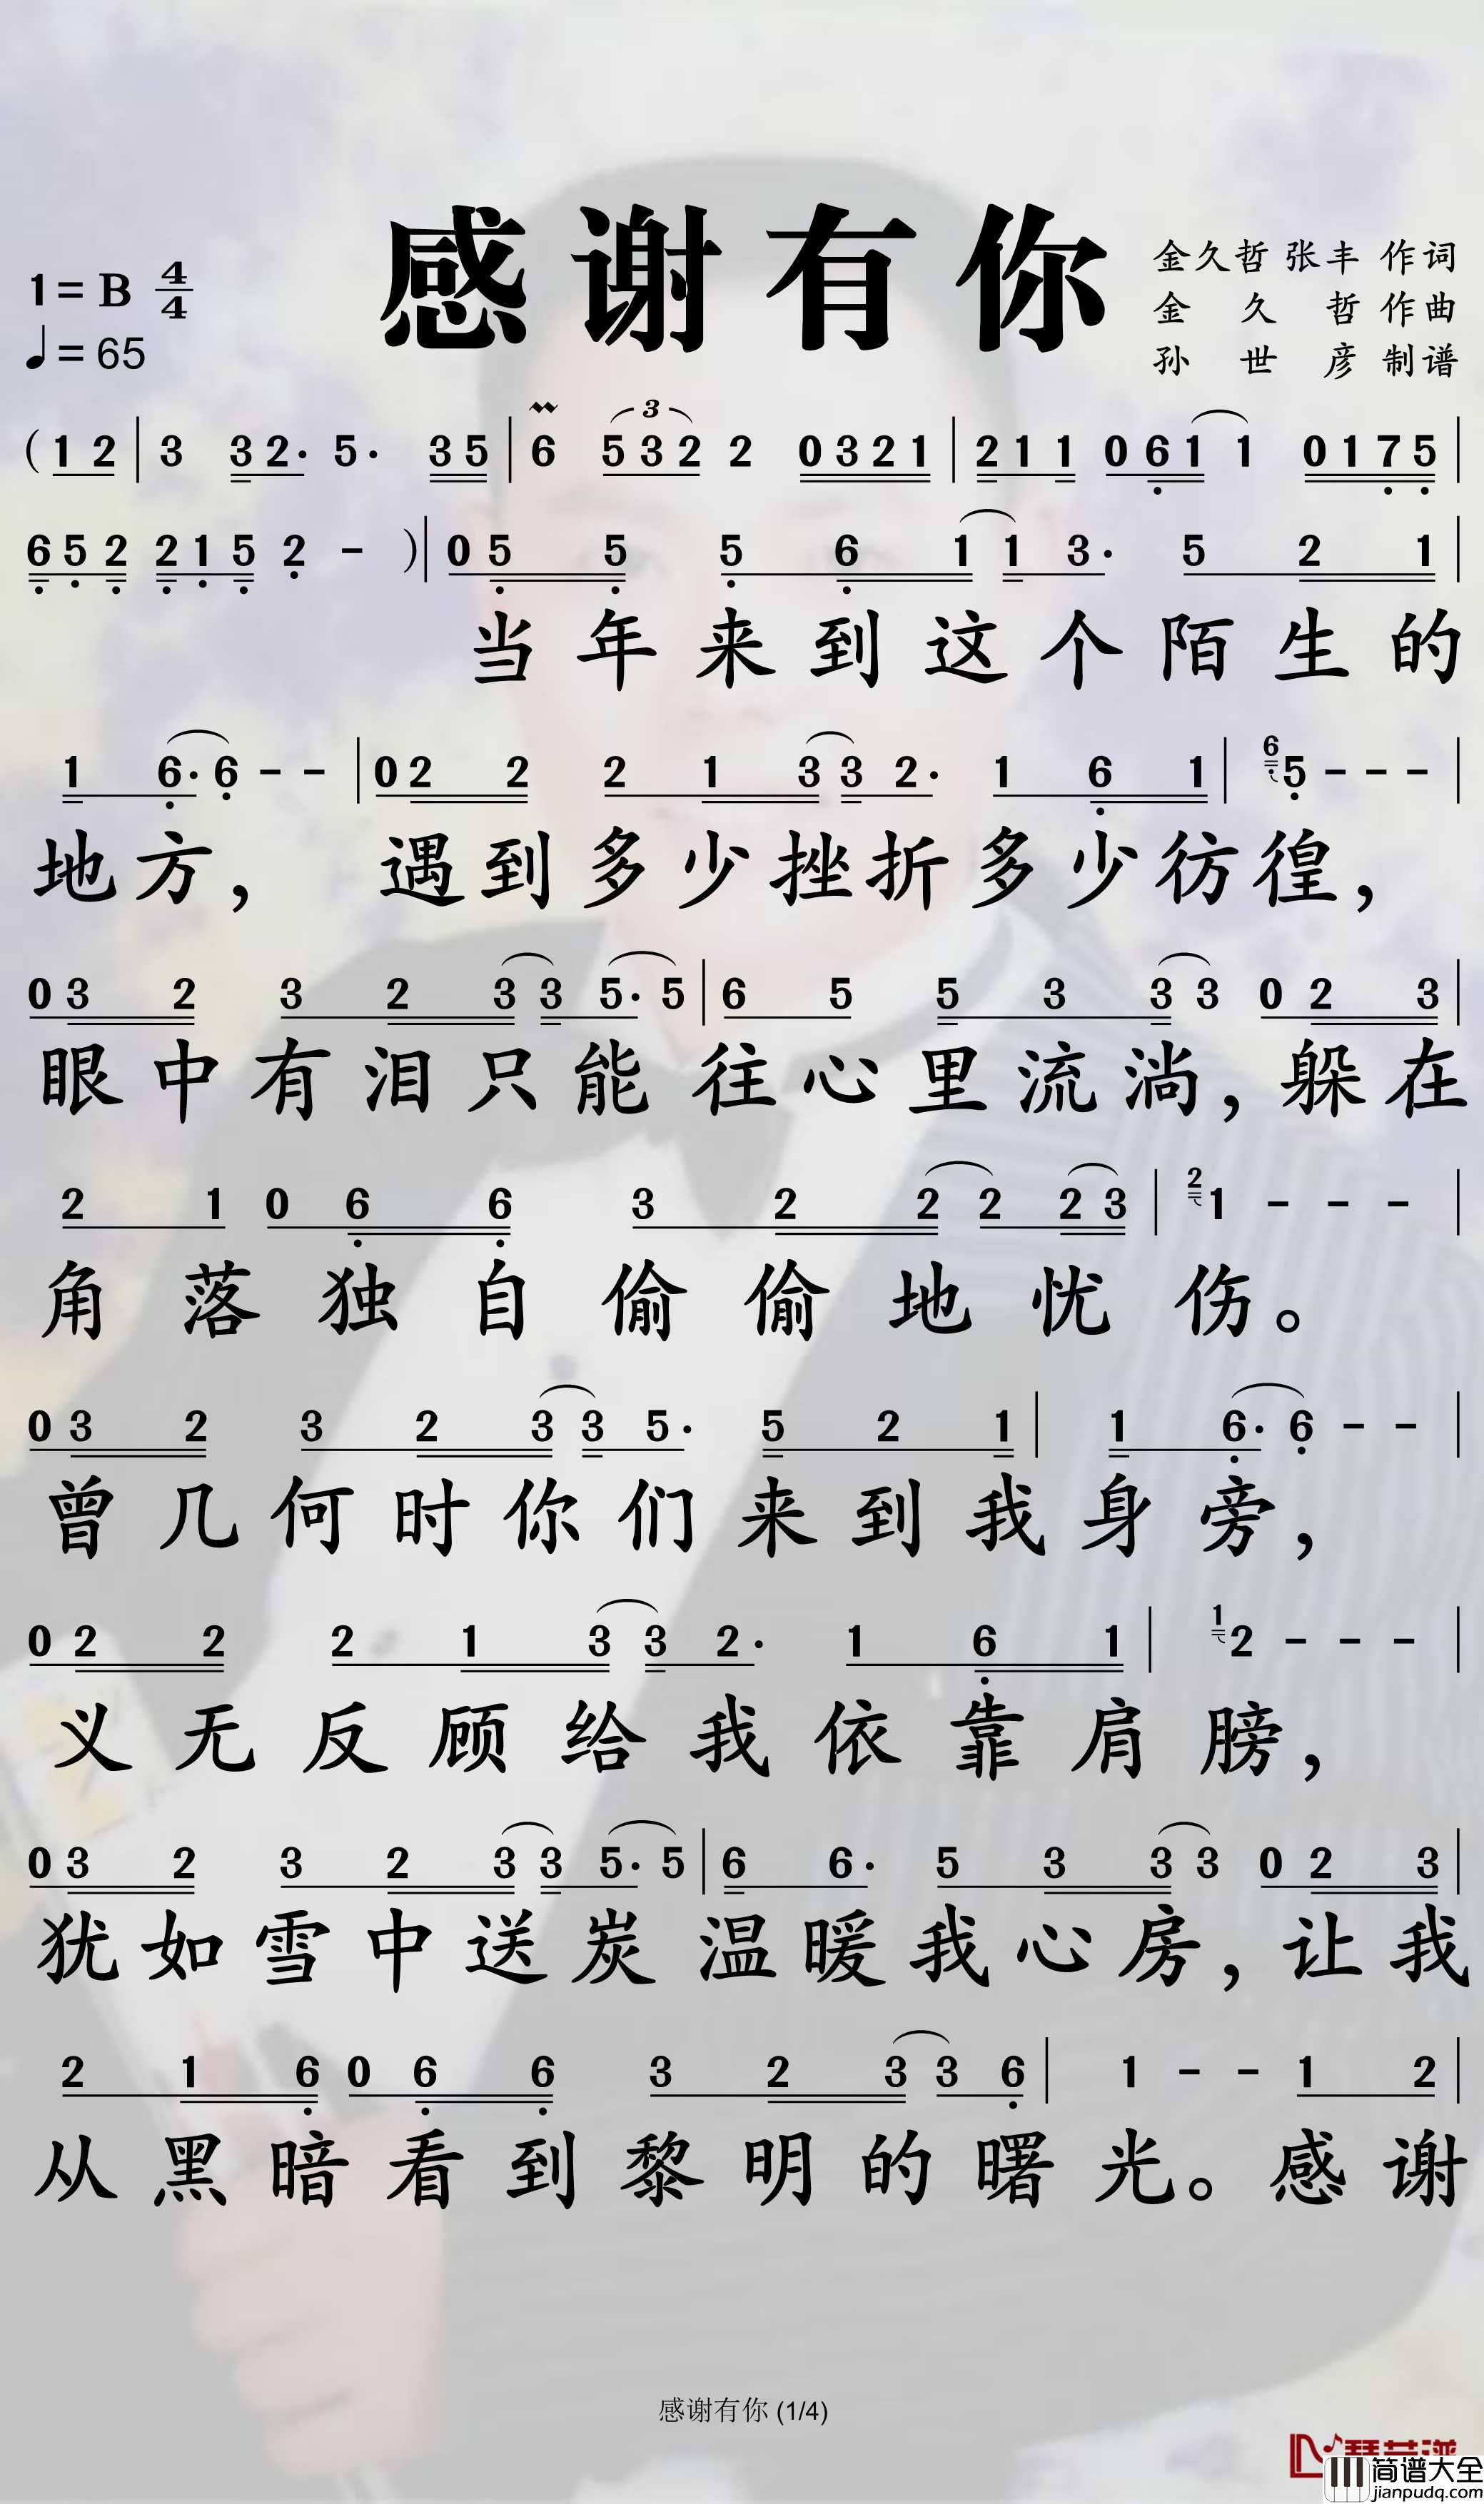 感谢有你
1=B 4/4
♩=65
金久哲 张丰 作词
金久哲 作曲
孙世彦 制谱
( 1 2 | 3 3 2· 5· 3 5 | 6 5 3 2 2 0 3 2 1 | 2 1 1 0 6 1 1 0 1 7 5 |
3
6 5 2 2 1 5 2 - ) | 0 5 5 5 6 1 1 3· 5 2 1 |
当年来到这个陌生的
1 6· 6 - - | 0 2 2 2 1 3 3 2· 1 6 1 | 6 5 - - - |
地方，遇到多少挫折多少彷徨，
0 3 2 3 2 3 3 5· 5 | 6 5 5 3 3 3 0 2 3 |
眼中有泪只能往心里流淌，躲在
2 1 0 6 6 3 2 2 2 2 3 | 2 1 - - - |
角落独自偷偷地忧伤。
0 3 2 3 2 3 3 5· 5 2 1 | 1 6· 6 - - |
曾几何时你们来到我身旁，
0 2 2 2 1 3 3 2· 1 6 1 | 1 2 - - - |
义无反顾给我依靠肩膀，
0 3 2 3 2 3 3 5· 5 | 6 6· 5 3 3 3 0 2 3 |
犹如雪中送炭温暖我心房，让我
2 1 6 0 6 6 3 2 3 3 6 | 1 - - 1 2 |
从黑暗看到黎明的曙光。感谢
感谢有你 (1/4)
简谱大全
jianpudq.com